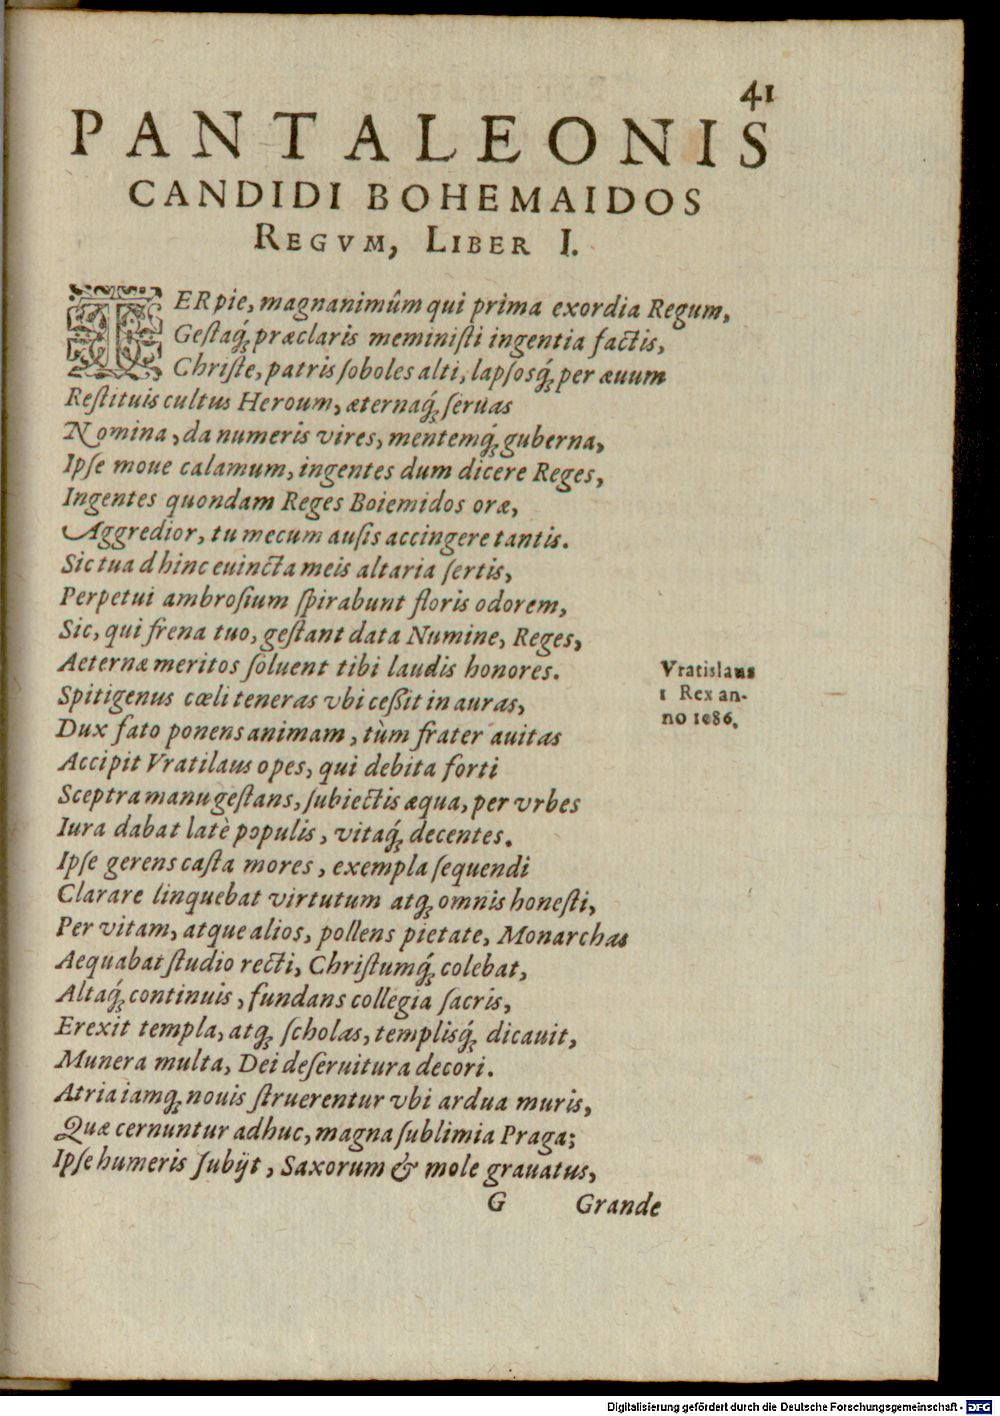 41
PANTALEONIS
CANDIDI BOHEMAIDOS
REGVM, LIBER I.
TER pie, magnanimûm qui prima exordia Regum,
Gestaq́; præclaris meministi ingentia factis,
Christe, patris soboles alti, lapsosq́; per æuum
Restituis cultus Heroum, æternaq́; seruas
Nomina, da numeris vires, mentemq́; guberna,
Ipse moue calamum, ingentes dum dicere Reges,
Ingentes quondam Reges Boiemidos oræ,
Aggredior, tu mecum ausis accingere tantis.
Sic tua dhinc euincta meis altaria sertis,
Perpetui ambrosium spirabunt floris odorem,
Sic, qui frena tuo, gestant data Numine, Reges,
Aeternæ meritos soluent tibi laudis honores.
Vratislaus
1 Rex an-
no 1086.
Spitigenus cœli teneras vbi cessit in auras,
Dux fato ponens animam, tùm frater auitas
Accipit Vratilaus opes, qui debita forti
Sceptra manu gestans, subiectis æqua, per vrbes
Iura dabat latè populis, vitaq́; decentes.
Ipse gerens casta mores, exempla sequendi
Clarare linquebat virtutum atq; omnis honesti,
Per vitam, atque alios, pollens pietate, Monarchas
Aequabat studio recti, Christumq́; colebat,
Altaq́; continuis, fundans collegia sacris,
Erexit templa, atq; scholas, templisq́; dicauit,
Munera multa, Dei deseruitura decori.
Atria iamq; nouis struerentur vbi ardua muris,
Quæ cernuntur adhuc, magna sublimia Praga;
Ipse humeris subijt, Saxorum & mole grauatus,
G Grande
Digitalisierung gefördert durch die Deutsche Forschungsgemeinschaft - DFG